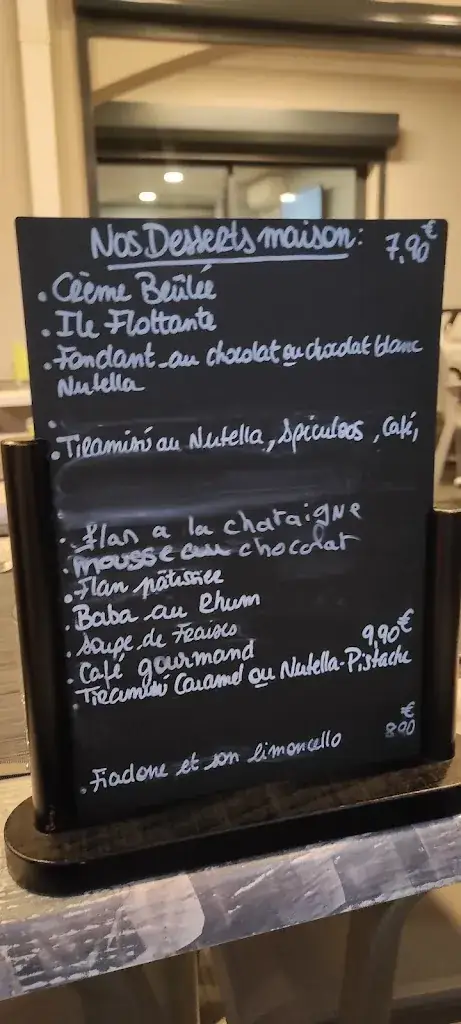 Nos Desserts maison: 7,90€
. Crème Brûlée
. Ile Flottante
. Fondant au chocolat ou chocolat blanc
Nutella
.
. Tiramisu au Nutella, Spiculoos, Café,
. flan a la chataigne
. mousse au chocolat
. Flan pâtissier
. Baba au Rhum
. Soupe de Fraises
. Café gourmand 9,90€
. Tiramisu Caramel ou Nutella-Pistache
. Fiadone et son limoncello 8,90€